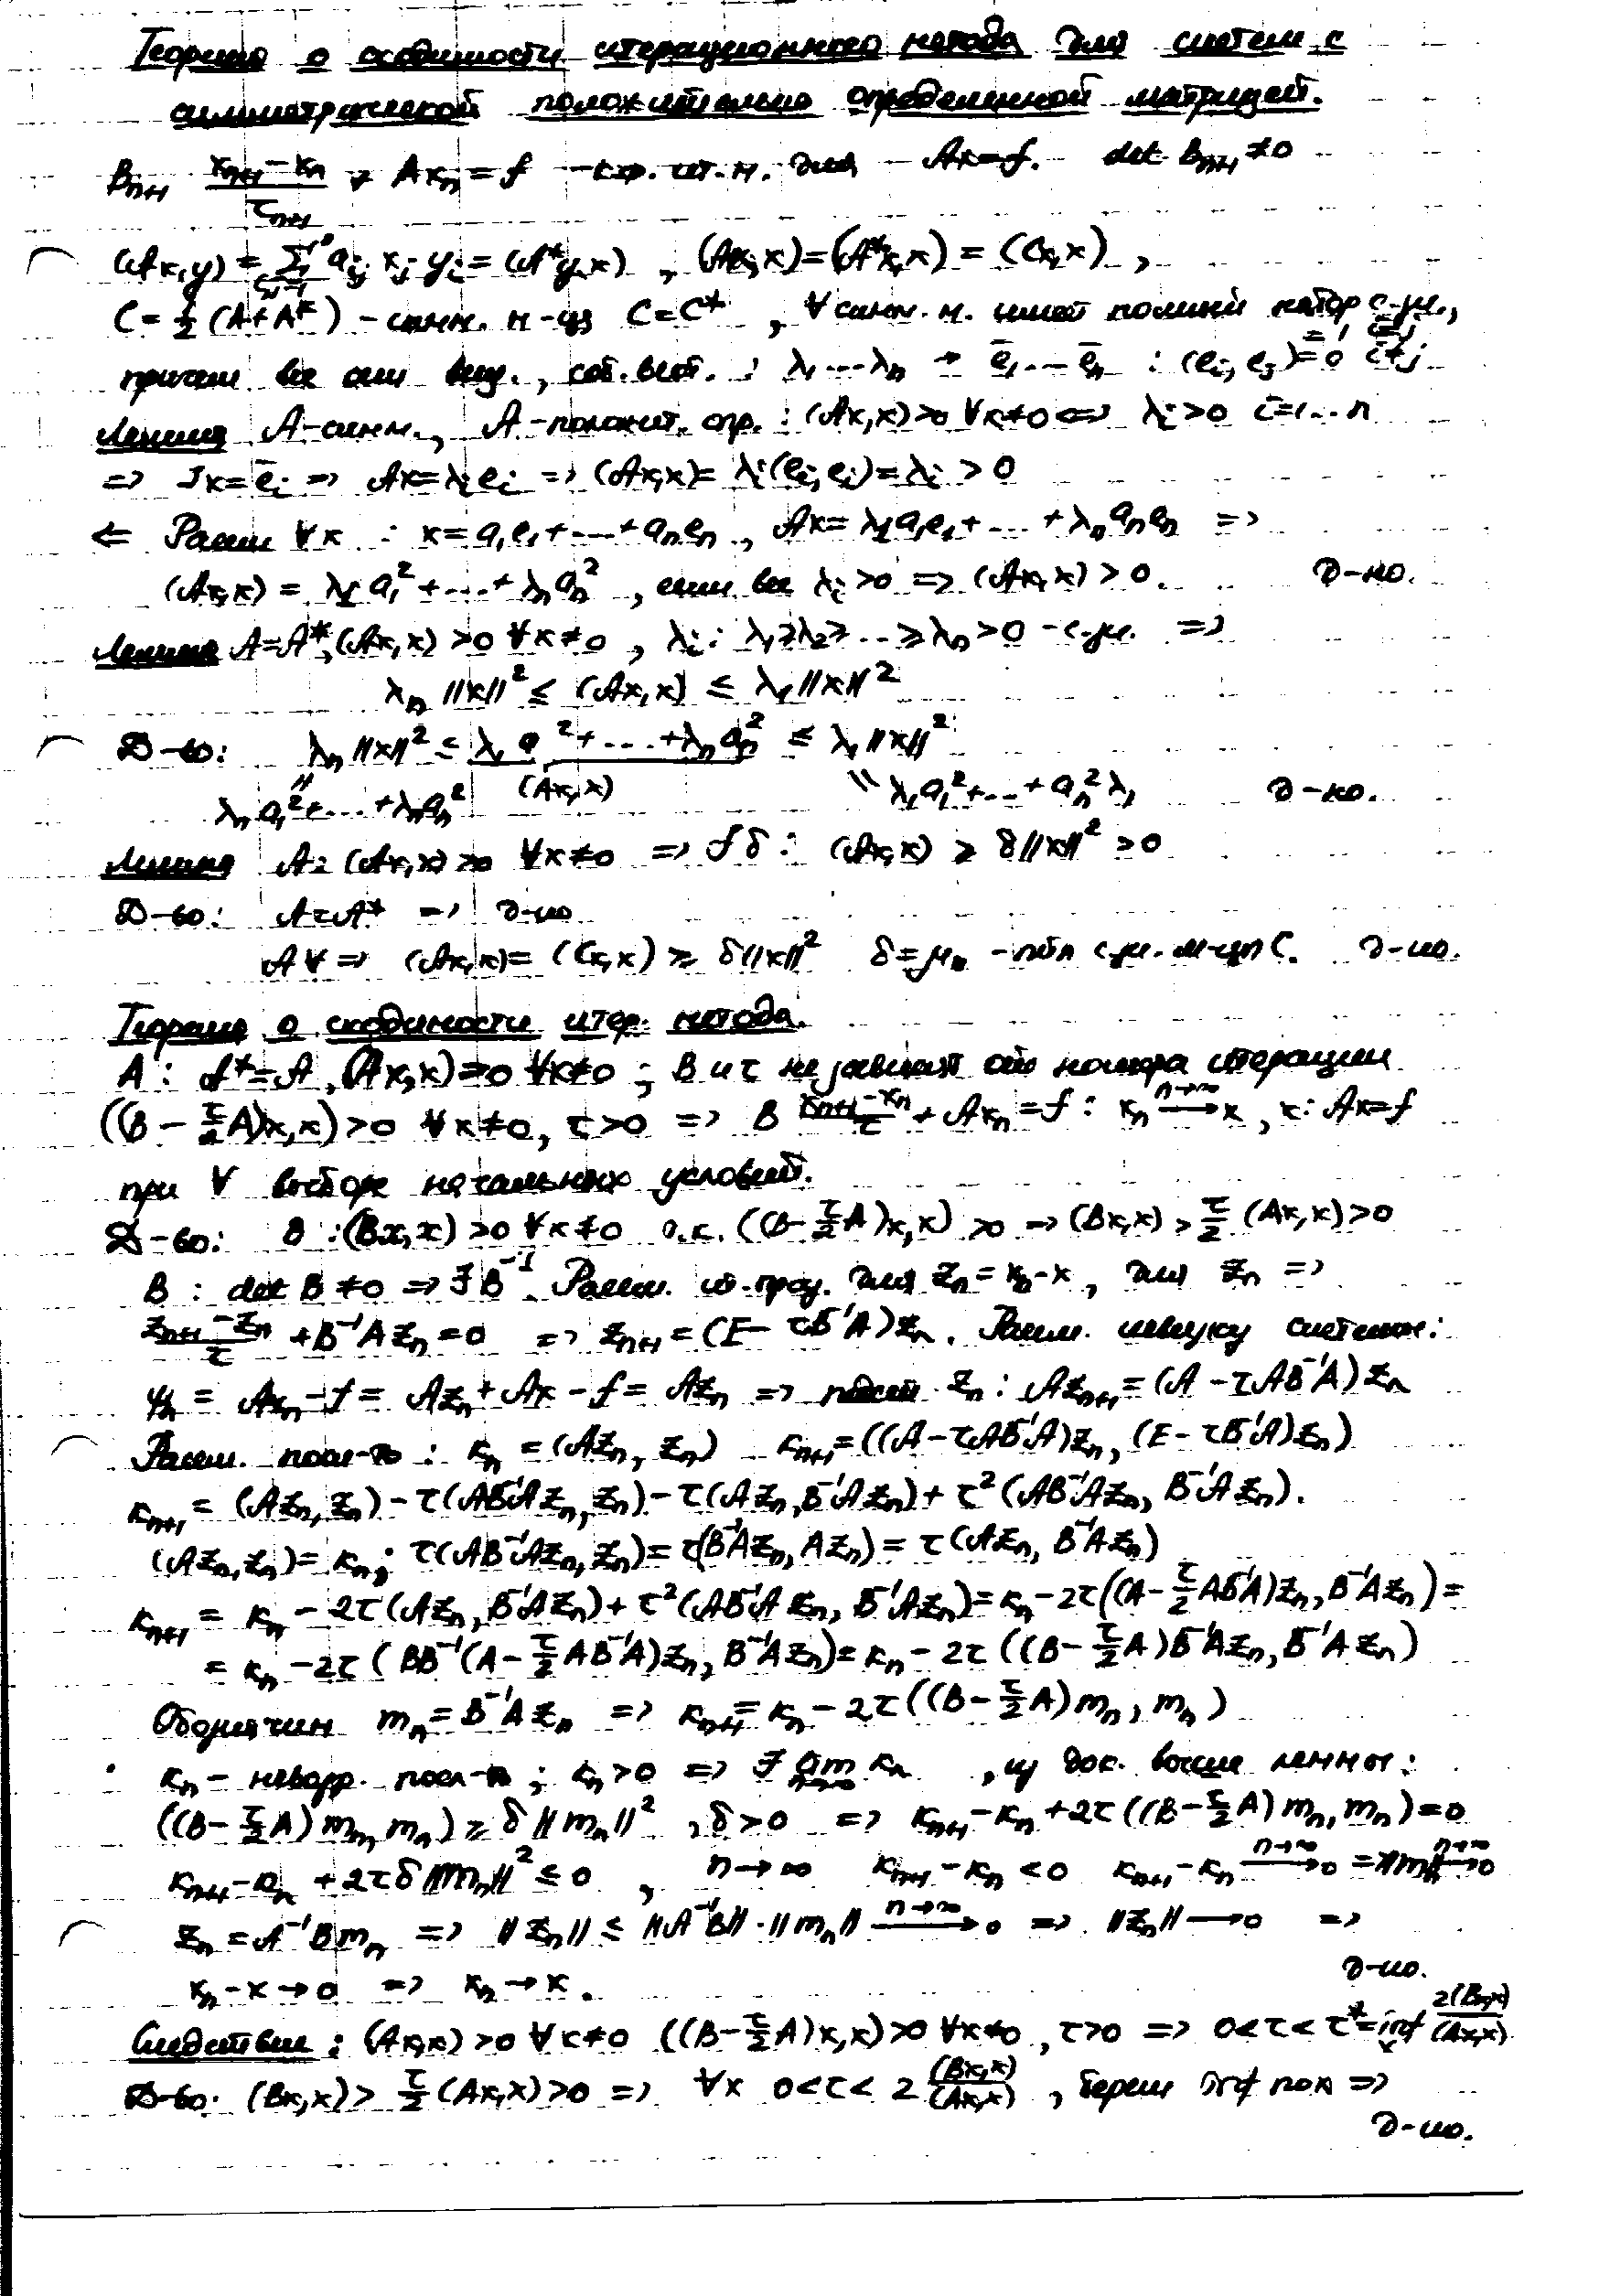 Теорема о сходимости итерационного метода для систем с
симметрической положительно определенной матрицей.
B_{n+1} (x_{n+1} - x_n)/τ_{n+1} + Ax_n = f - ит. м. для Ax=f. det B_{n+1} ≠ 0
(Ax,y) = Σ a_{ij} x_j y_i = (A*y,x), (Ax,x)=(A*x,x) = (Cx,x),
C = 1/2 (A+A*) - симм. м-ца C=C*, ∀ симм. м. имеет полный набор с.зн.,
причем все они вещ., соб.вект.: λ_1...λ_n → ē_1...ē_n : (e_i, e_j) =1, i=j =0 i≠j
Лемма A-симм., A-полож. опр.: (Ax,x)>0 ∀x≠0 <=> λ_i>0 i=1...n
=> ∃x=ē_i => Ax=λ_i e_i => (Ax,x)= λ_i(e_i,e_i)=λ_i > 0
<= Рассм ∀x : x=a_1e_1+...+a_ne_n, Ax=λ_1a_1e_1+...+λ_na_ne_n =>
(Ax,x) = λ_1a_1²+...+λ_na_n², если все λ_i>0 => (Ax,x) > 0. д-но.
Лемма A=A*, (Ax,x) > 0 ∀x≠0, λ_i: λ_1≥λ_2≥...≥λ_n>0 - с.зн. =>
λ_n ||x||² ≤ (Ax,x) ≤ λ_1||x||²
Д-во: λ_n||x||² ≤ λ_1a_1²+...+λ_na_n² ≤ λ_1||x||²
λ_na_1²+...+λ_na_n² (Ax,x) λ_1a_1²+...+a_n²λ_1 д-но.
Лемма A: (Ax,x)>0 ∀x≠0 => ∃δ: (Ax,x) ≥ δ||x||² > 0
Д-во: A=A* => д-но
A ∀ => (Ax,x)= (Cx,x) ≥ δ||x||² δ=μ_n - с.зн. м-цы C. д-но.
Теорема о сходимости итер. метода.
A: A*=A, (Ax,x)>0 ∀x≠0; B и τ не зависят от номера итерации
((B - τ/2 A)x,x)>0 ∀x≠0, τ>0 => B (x_{n+1}-x_n)/τ + Ax_n = f : x_n →^{n→∞} x, x: Ax=f
при ∀ выборе начальных условий.
Д-во: B : (Bx,x) >0 ∀x≠0 т.к. ((B-τ/2 A)x,x) >0 => (Bx,x) > τ/2 (Ax,x)>0
B : det B ≠0 => ∃B^{-1}. Рассм. для z_n = x_n-x, для z_n =>
(z_{n+1}-z_n)/τ + B^{-1}Az_n=0 => z_{n+1}=(E-τB^{-1}A)z_n. Рассм. невязку системы:
ψ_n = Ax_n-f = Az_n+Ax-f = Az_n => z_n: Az_{n+1}=(A-τAB^{-1}A)z_n
Рассм. посл-ть: κ_n = (Az_n, z_n) κ_{n+1}=((A-τAB^{-1}A)z_n, (E-τB^{-1}A)z_n)
κ_{n+1} = (Az_n,z_n)-τ(AB^{-1}Az_n,z_n)-τ(Az_n,B^{-1}Az_n)+τ²(AB^{-1}Az_n, B^{-1}Az_n).
(Az_n,z_n)= κ_n; τ(AB^{-1}Az_n,z_n)=τ(B^{-1}Az_n, Az_n) = τ(Az_n, B^{-1}Az_n)
κ_{n+1} = κ_n - 2τ(Az_n,B^{-1}Az_n)+τ²(AB^{-1}Az_n, B^{-1}Az_n)=κ_n-2τ((A-τ/2 AB^{-1}A)z_n,B^{-1}Az_n)=
= κ_n-2τ(BB^{-1}(A-τ/2 AB^{-1}A)z_n, B^{-1}Az_n)=κ_n-2τ((B-τ/2 A)B^{-1}Az_n,B^{-1}Az_n)
Обозначим m_n=B^{-1}Az_n => κ_{n+1}=κ_n-2τ((B-τ/2 A)m_n, m_n)
κ_n - невозр. посл-ть; κ_n>0 => ∃ lim_{n→∞} κ_n, из док. выше леммы:
((B-τ/2 A)m_n,m_n) ≥ δ||m_n||², δ>0 => κ_{n+1}-κ_n+2τ((B-τ/2 A)m_n,m_n)=0
κ_{n+1}-κ_n+2τδ||m_n||² ≤ 0, n→∞ κ_{n+1}-κ_n<0 κ_{n+1}-κ_n →^{n→∞} 0 => ||m_n|| →^{n→∞} 0
z_n=A^{-1}Bm_n => ||z_n|| ≤ ||A^{-1}B||·||m_n|| →^{n→∞} 0 => ||z_n||→0 =>
x_n-x→0 => x_n→x. д-но.
Следствие: (Ax,x)>0 ∀x≠0 ((B-τ/2 A)x,x)>0 ∀x≠0, τ>0 => 0<τ<τ*=inf_x 2(Bx,x)/(Ax,x)
Д-во: (Bx,x)> τ/2 (Ax,x)>0 => ∀x 0<τ< 2 (Bx,x)/(Ax,x), берем inf по x =>
д-но.